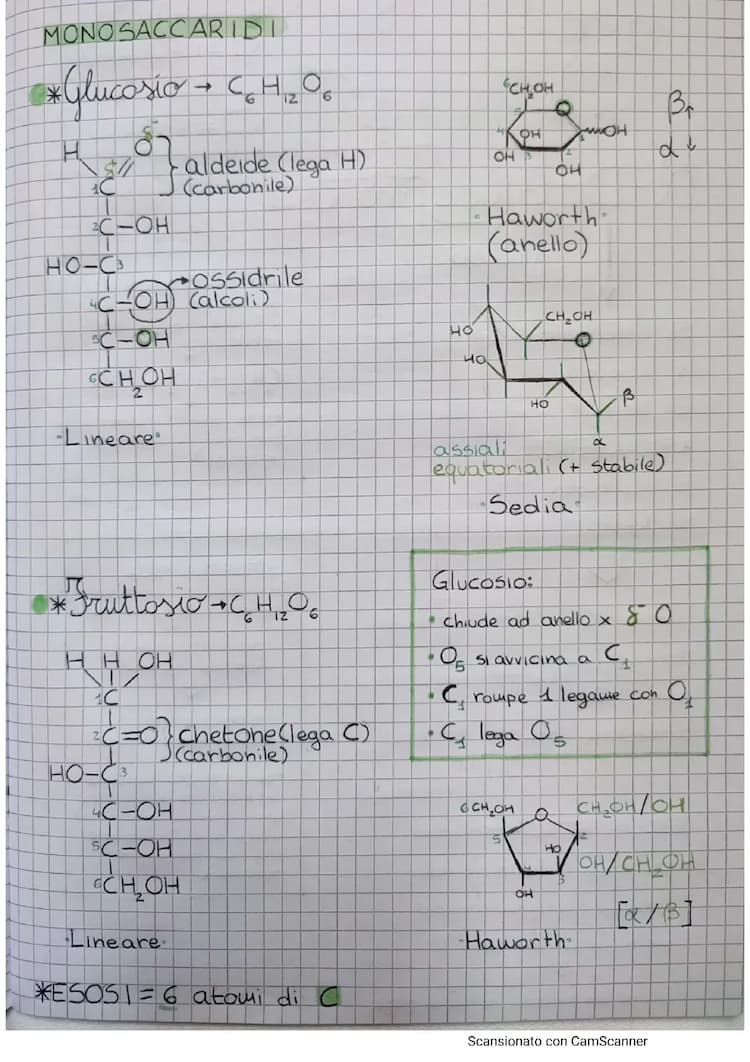 MONOSACCARIDI
*Glucosio → C₆H₁₂O₆
H O δ⁻
δ⁺
1C } aldeide (lega H)
(carbonile)
2C-OH
HO-C3
4C-OH → ossidrile
(alcoli)
5C-OH
6CH₂OH
"Lineare"
6CH₂OH
O
4 OH OH
OH 3 2
OH
β↑
α↓
"Haworth"
(anello)
HO
CH₂OH
HO
HO
β
α
assiali
equatoriali (+ stabile)
"Sedia"
*Fruttosio → C₆H₁₂O₆
H H OH
1C
2C=O } chetone (lega C)
(carbonile)
HO-C3
4C-OH
5C-OH
6CH₂OH
"Lineare"
Glucosio:
• chiude ad anello x δ⁻ O
• O₅ si avvicina a C₁
• C₁ rompe 1 legame con O₁
• C₁ lega O₅
6CH₂OH O CH₂OH/OH
5 2
HO OH/CH₂OH
3
OH
[α/β]
"Haworth"
*ESOSI = 6 atomi di C
Scansionato con CamScanner